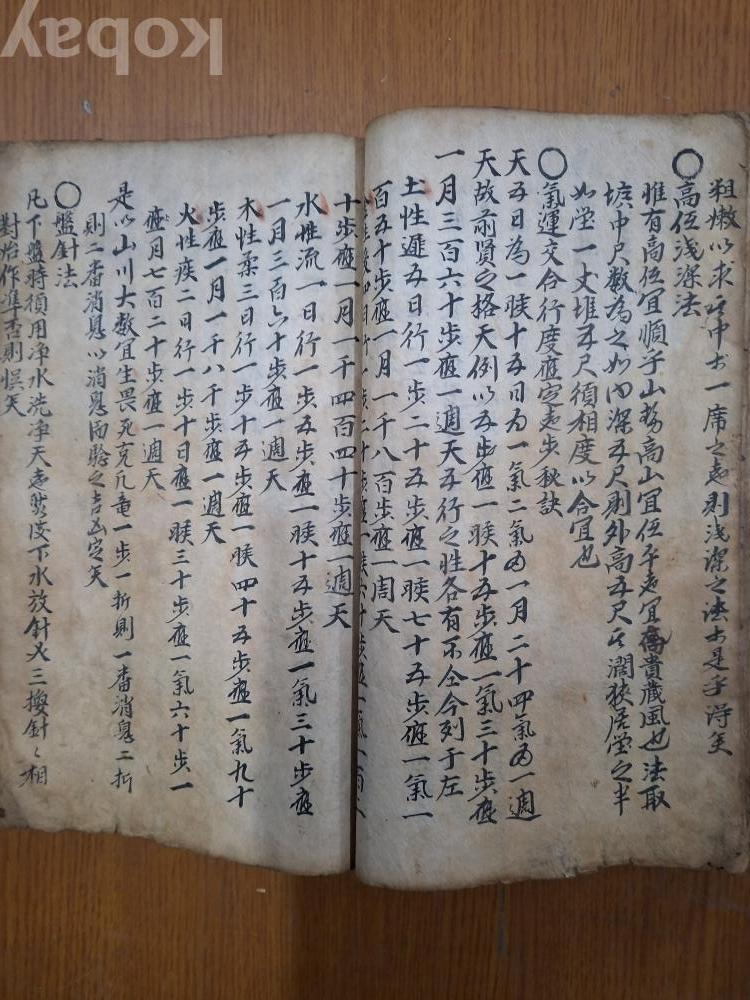 粗嫩以求其中土一席之地則淺深之法土是乎得矣
高低淺深法
惟有高低宜順乎山勢高山宜低平地宜高貴藏風也法取
壙中尺數為之如內深五尺則外高五尺其濶狹居塋之半
如塋一丈堆五尺須相度以合宜也
氣運交合行度應定地步秘訣
天五日為一候十五日為一氣二氣為一月二十四氣為一週
天故前賢之格天例以五步應一候十五步應一氣三十步應
一月三百六十步應一週天五行之性各有不仝今列于左
土性遲五日行一步二十五步應一候七十五步應一氣一
百五十步應一月一千八百步應一周天
四日行一步二十步應一候六十步應一氣一百二
十步應一月一千四百四十步應一週天
水性流一日行一步五步應一候十五步應一氣三十步應
一月三百六十步應一週天
木性柔三日行一步十五步應一候四十五步應一氣九十
步應一月一千八十步應一週天
火性疾二日行一步十日應一候三十步應一氣六十步一
應月七百二十步應一週天
是以山川大數宜生畏死亢竜一步一折則一番消息二折
則二番消息以消息而驗之吉凶定矣
盤針法
凡下盤時須用净水洗净天池然後下水放針必三換針〻相
對始作準否則悞矣
kobay